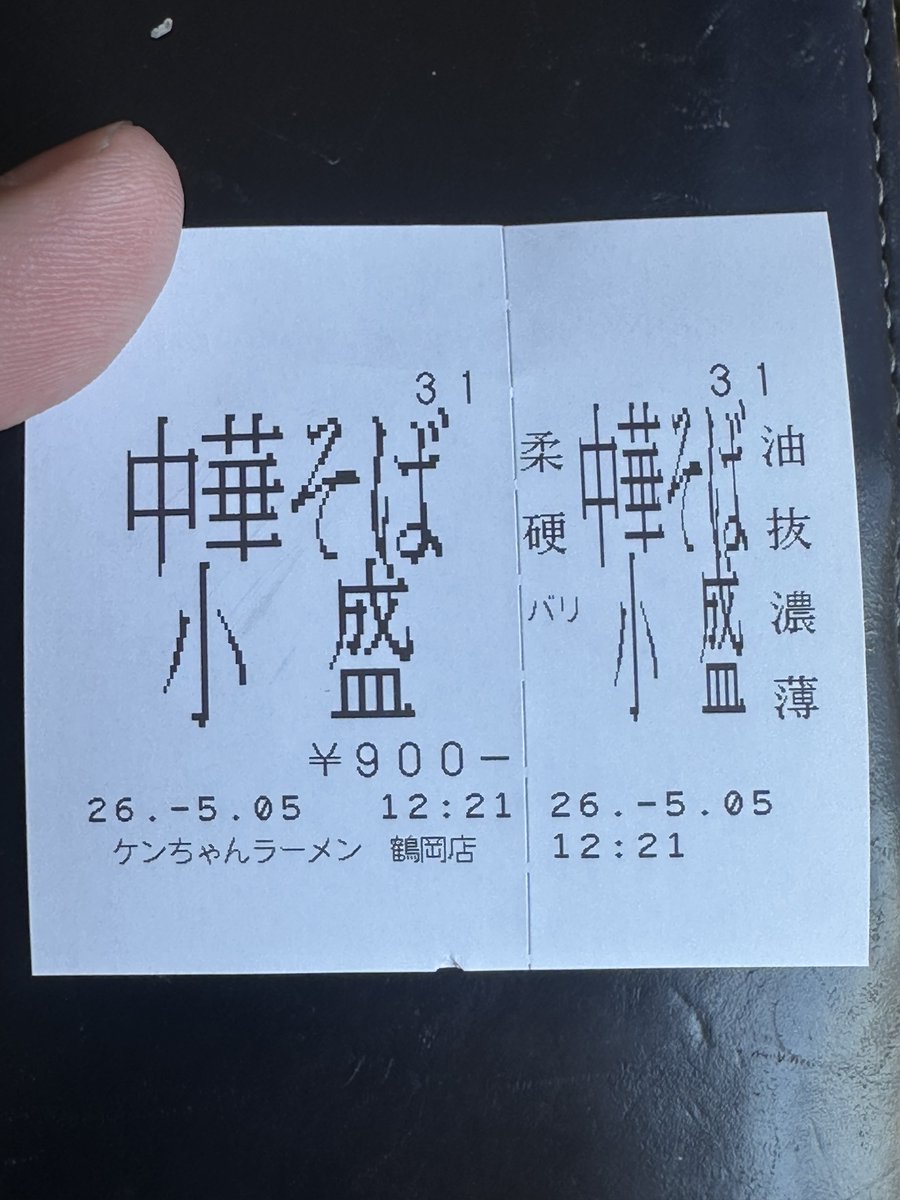 31
中華そば
小盛
¥900-
26.-5.05 12:21
ケンちゃんラーメン 鶴岡店
31
柔 中華そば 油
硬 抜
バリ 小盛 濃
薄
26.-5.05
12:21